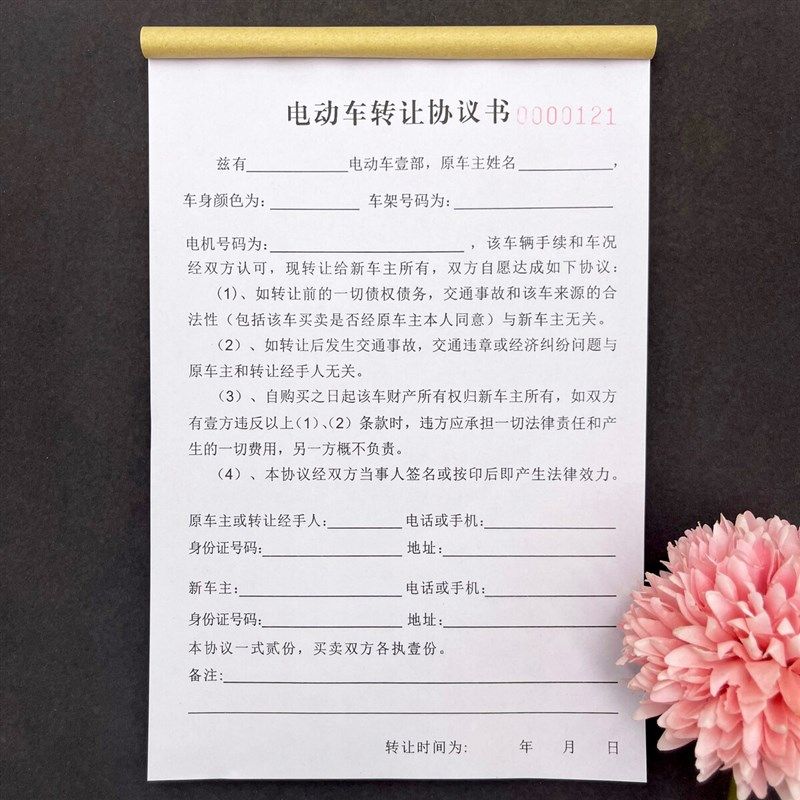 电动车转让协议书 0000121
兹有__________电动车壹部，原车主姓名__________，
车身颜色为：__________ 车架号码为：__________
电机号码为：__________，该车辆手续和车况
经双方认可，现转让给新车主所有，双方自愿达成如下协议：
（1）、如转让前的一切债权债务，交通事故和该车来源的合
法性（包括该车买卖是否经原车主本人同意）与新车主无关。
（2）、如转让后发生交通事故，交通违章或经济纠纷问题与
原车主和转让经手人无关。
（3）、自购买之日起该车财产所有权归新车主所有，如双方
有壹方违反以上（1）、（2）条款时，违方应承担一切法律责任和产
生的一切费用，另一方概不负责。
（4）、本协议经双方当事人签名或按印后即产生法律效力。
原车主或转让经手人：__________ 电话或手机：__________
身份证号码：__________ 地址：__________
新车主：__________ 电话或手机：__________
身份证号码：__________ 地址：__________
本协议一式贰份，买卖双方各执壹份。
备注：__________
转让时间为： 年 月 日